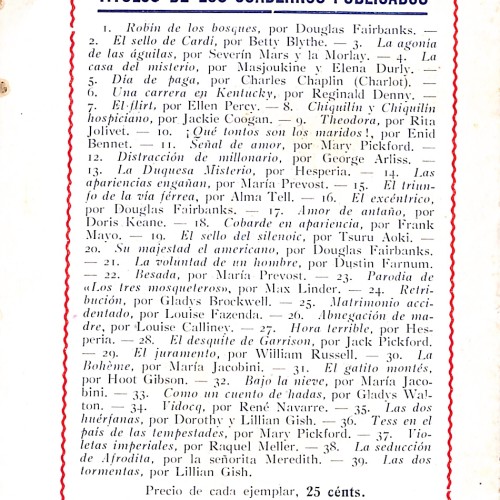 TÍTULOS DE LOS CUADERNOS PUBLICADOS
1. Robín de los bosques, por Douglas Fairbanks. —
2. El sello de Cardi, por Betty Blythe. — 3. La agonía
de las águilas, por Severín Mars y la Morlay. — 4. La
casa del misterio, por Masjoukine y Elena Durly. —
5. Día de paga, por Charles Chaplin (Charlot). —
6. Una carrera en Kentucky, por Reginald Denny. —
7. El flirt, por Ellen Percy. — 8. Chiquilín y Chiquilín
hospiciano, por Jackie Coogan. — 9. Theodora, por Rita
Jolivet. — 10. ¡Qué tontos son los maridos!, por Enid
Bennet. — 11. Señal de amor, por Mary Pickford. —
12. Distracción de millonario, por George Arliss. —
13. La Duquesa Misterio, por Hesperia. — 14. Las
apariencias engañan, por María Prevost. — 15. El triun-
fo de la vía férrea, por Alma Tell. — 16. El excéntrico,
por Douglas Fairbanks. — 17. Amor de antaño, por
Doris Keane. — 18. Cobarde en apariencia, por Frank
Mayo. — 19. El sello del silenoic, por Tsuru Aoki. —
20. Su majestad el americano, por Douglas Fairbanks.
— 21. La voluntad de un hombre, por Dustin Farnum.
— 22. Besada, por María Prevost. — 23. Parodia de
«Los tres mosqueteros», por Max Linder. — 24. Retri-
bución, por Gladys Brockwell. — 25. Matrimonio acci-
dentado, por Louise Fazenda. — 26. Abnegación de ma-
dre, por Louise Calliney. — 27. Hora terrible, por Hes-
peria. — 28. El desquite de Garrison, por Jack Pickford.
— 29. El juramento, por William Russell. — 30. La
Bohème, por María Jacobini. — 31. El gatito montés,
por Hoot Gibson. — 32. Bajo la nieve, por María Jaco-
bini. — 33. Como un cuento de hadas, por Gladys Wal-
ton. — 34. Vidocq, por René Navarre. — 35. Las dos
huérfanas, por Dorothy y Lillian Gish. — 36. Tess en el
país de las tempestades, por Mary Pickford. — 37. Vio-
letas imperiales, por Raquel Meller. — 38. La seducción
de Afrodita, por la señorita Meredith. — 39. Las dos
tormentas, por Lillian Gish.
Precio de cada ejemplar, 25 cents.